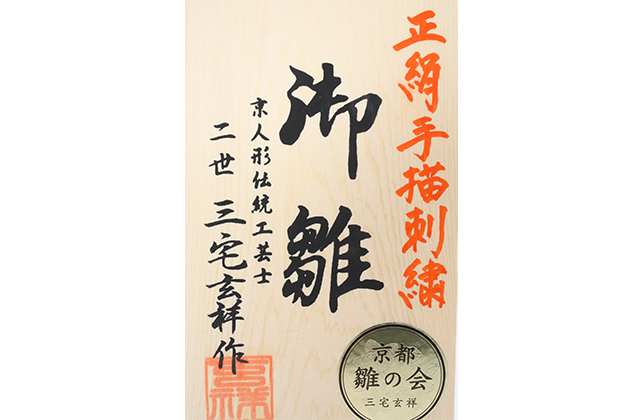 正絹手描刺繍
御雛
京人形伝統工芸士
二世 三宅玄祥作
京都
雛の会
三宅玄祥